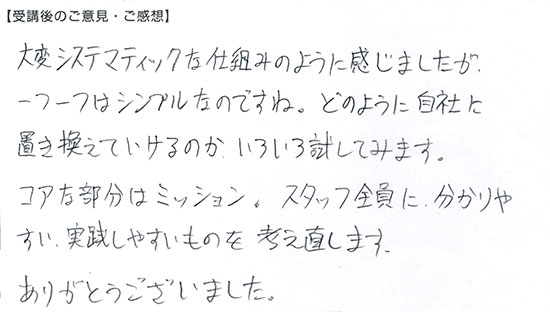 【受講後のご意見・ご感想】
大変システマティックな仕組みのように感じましたが、
一つ一つはシンプルなのですね。どのように自社に
置き換えていけるのか、いろいろ試してみます。
コアな部分はミッション。スタッフ全員に、分かりや
すい、実践しやすいものを考え直します。
ありがとうございました。